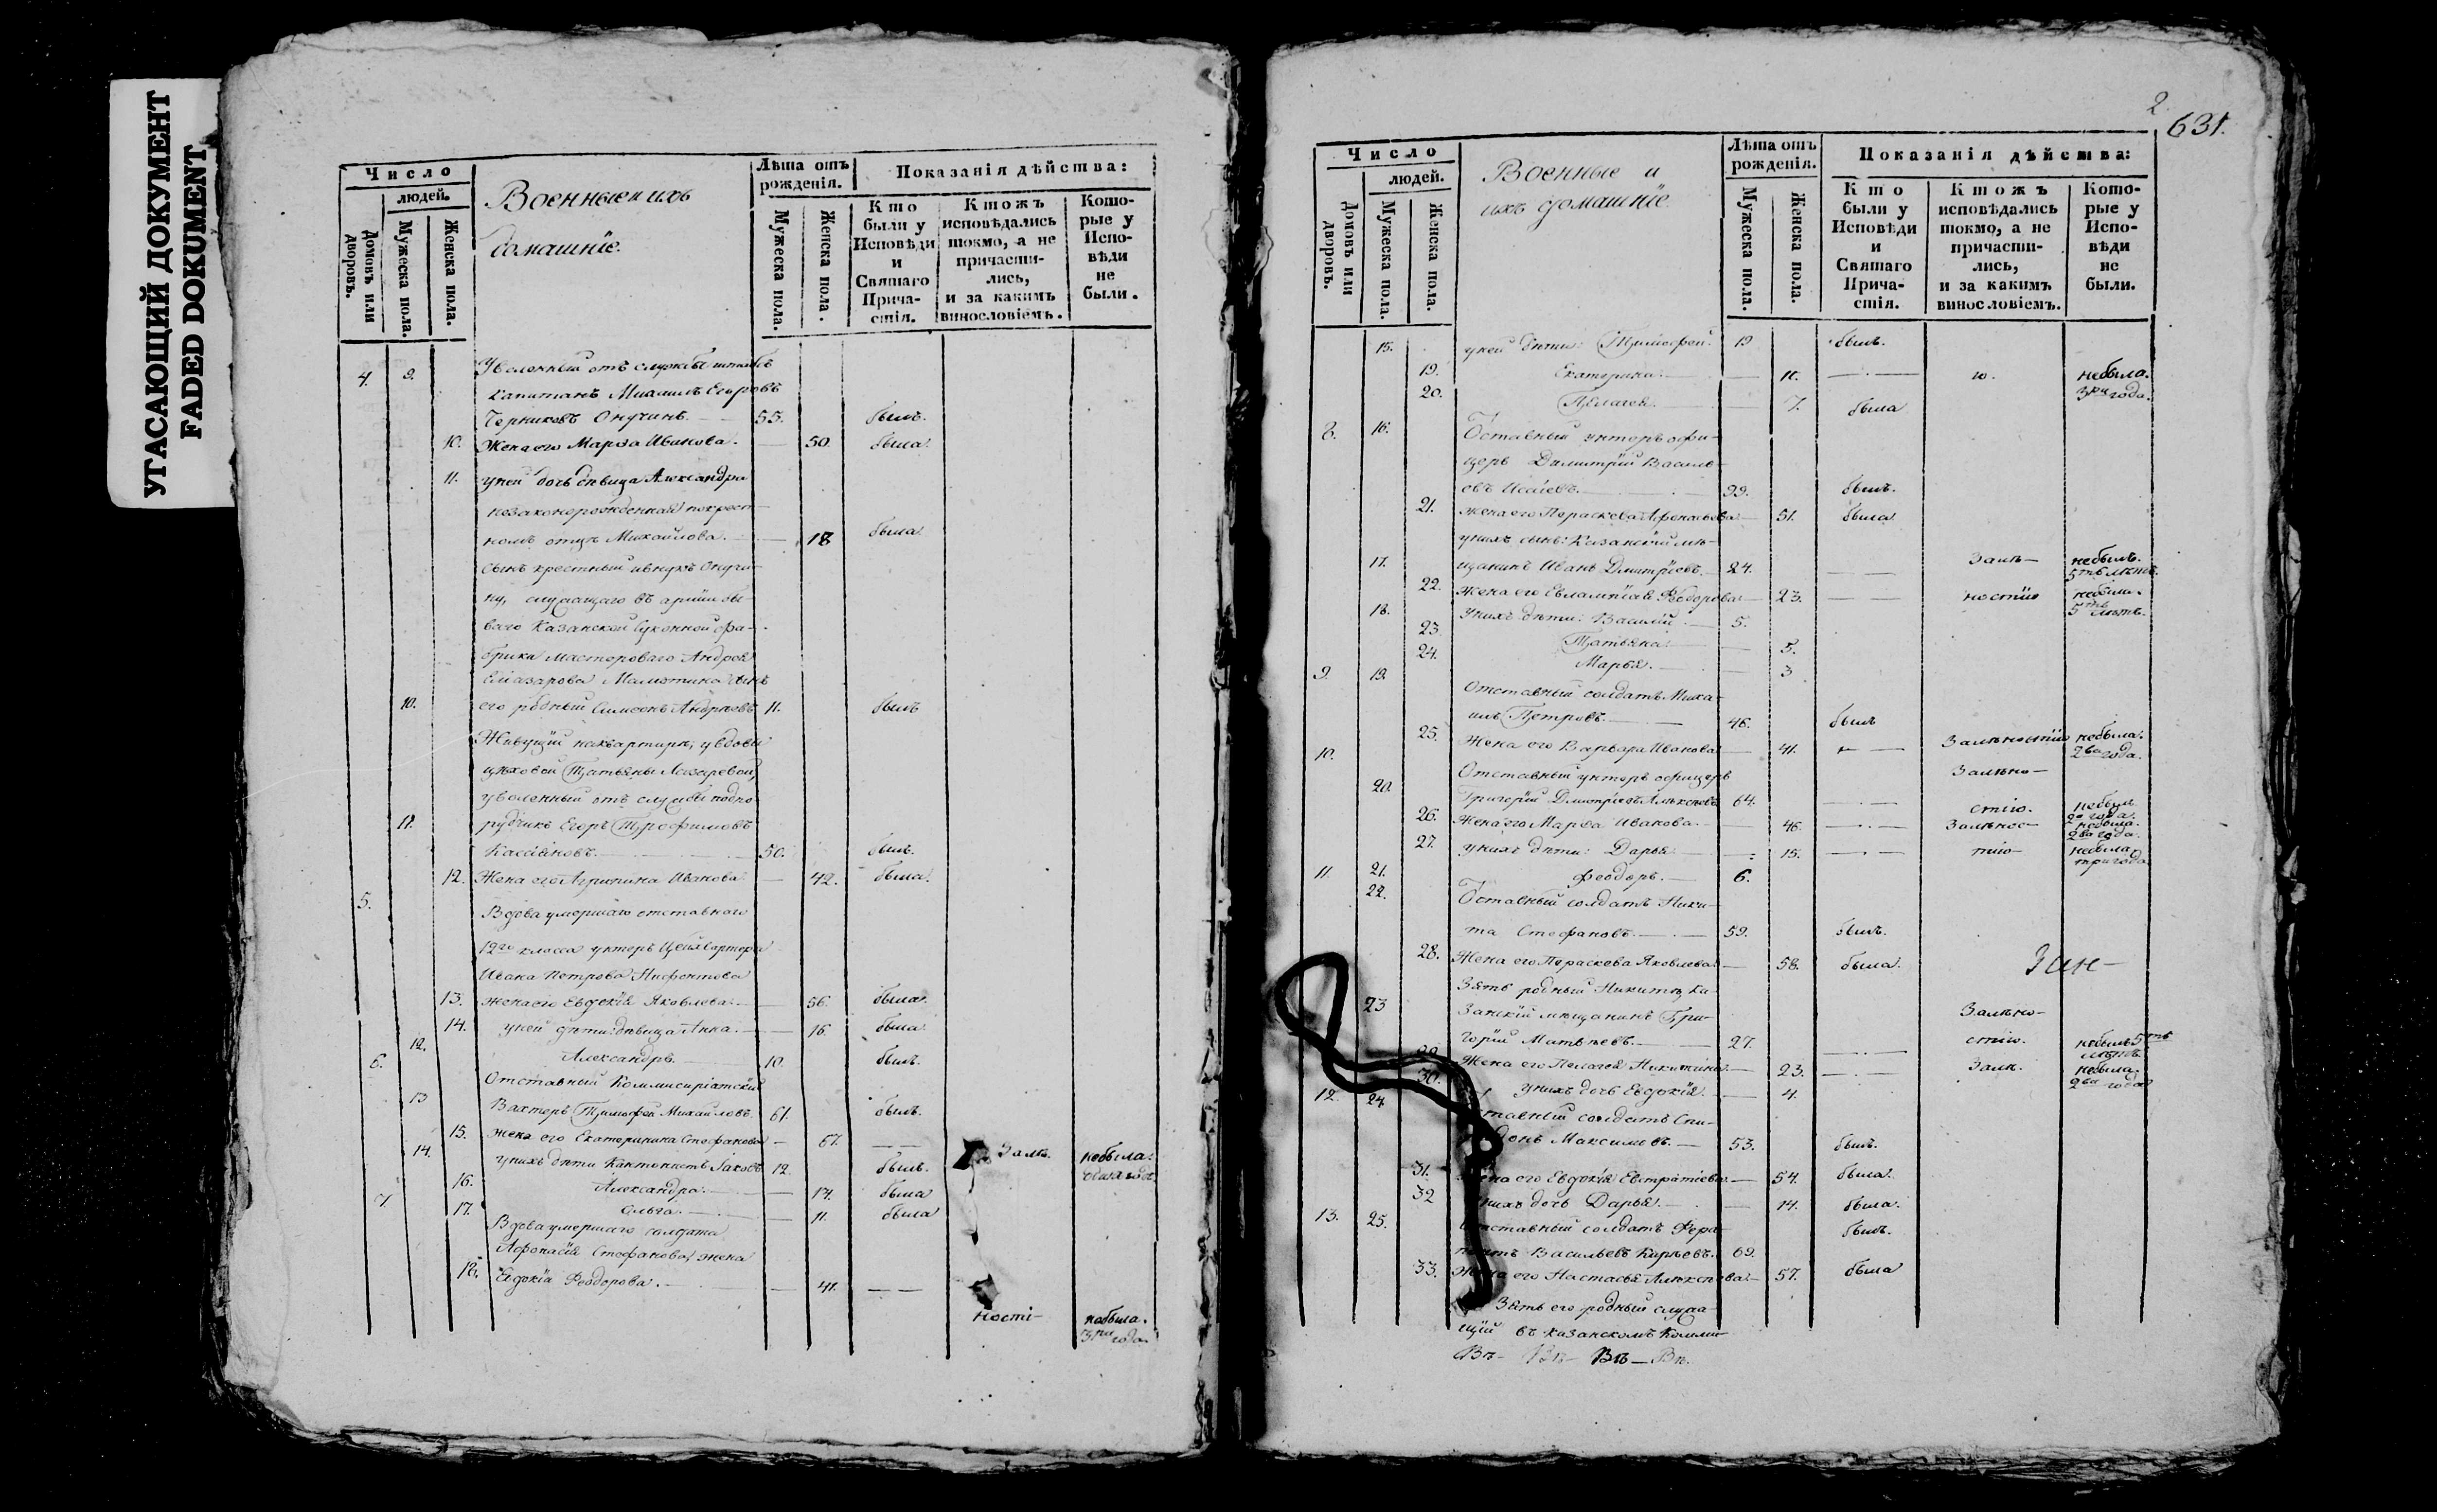 УГАСАЮЩИЙ ДОКУМЕНТ
FADED DOKUMENT
Число
людей.
Домовъ или дворовъ.
Мужеска пола.
Женска пола.
Военные и ихъ
домашніе.
Лѣта отъ рожденія.
Мужеска пола.
Женска пола.
Показанія дѣйства:
Кто были у Исповѣди и Святаго Причастія.
Ктожъ исповѣдались токмо, а не причастились, и за какимъ винословіемъ.
Которые у Исповѣди не были.
4. 9. Уволенный отъ службы штабсъ
капитанъ Михаилъ Егоровъ
Черниковъ Онучинъ. 55. былъ.
10. Жена его Марфа Иванова. 50. была.
11. у ней дочь девица Александра
незаконорожденная по крест-
номъ отцѣ Михайлова. 18 была
сынъ крестный и внукъ Онучи-
ну, служащаго въ арміи бы-
ваго Казанской суконной фа-
брики мастероваго Андрея
Елиазарова Маматина сынъ
10. его родный Симеонъ Андреевъ 11. былъ
Живущій на квартире, у вдовы
цѣховой Татьяны Лазаревой,
уволенный отъ службы подпо-
11. рутчикъ Егоръ Трофимовъ
Касіяновъ. 50. былъ.
12. Жена его Агрипина Иванова 42. была.
5. Вдова умершаго отставнаго
12го класса унтеръ Цейхвартера
Ивана Петрова Нифонтова
13. жена его Евдокія Яковлева. 56. была.
14. у ней дѣти: дѣвица Анна. 16. была.
12. Александръ. 10. былъ.
6. Отставный Коммисиріатскій
13 Вахтеръ Тимофей Михайловъ. 61. былъ.
15. жена его Екатерина Стефанова 67. Залѣ- небыла.
14. у нихъ дѣти Кантонистъ Іаковъ 12. былъ. одинъ годъ
16. Александра. 14. была
17. Ольга. 11. была
7. Вдова умершаго солдата
Афонасія Стефанова, жена
18. Евдокія Феодорова. 41. ності- небыла.
3ри года.
2
631.
Число
людей.
Домовъ или дворовъ.
Мужеска пола.
Женска пола.
Военные и
ихъ домашніе
Лѣта отъ рожденія.
Мужеска пола.
Женска пола.
Показанія дѣйства:
Кто были у Исповѣди и Святаго Причастія.
Ктожъ исповѣдались токмо, а не причастились, и за какимъ винословіемъ.
Которые у Исповѣди не были.
15. у ней дѣти: Тимофей. 19 былъ.
19. Екатерина. 11. ю. небыла.
3ри года.
20. Пелагея. 7. была
8. 16. Отставный унтеръ офи-
церъ Димитрій Василь-
евъ Исаевъ. 99. былъ.
21. жена его Параскева Афонасьева 51. была
у нихъ сынъ: Казанскій мѣ-
17. щанинъ Иванъ Дмитріевъ. 24. Залѣ- небылъ.
5ть лѣтъ.
22. Жена его Евлампія Феодорова 23. ностію небыла.
5ть лѣтъ.
18. У нихъ дѣти: Василій. 5.
23. Татьяна. 5.
24. Марья. 3
9. 19. Отставный солдатъ Миха-
илъ Петровъ. 46. былъ
25. Жена его Варвара Иванова 41. Залѣностію небыла.
2ва года.
10. Отставный унтеръ офицеръ Залѣно-
20. Григорій Дмитріевъ Алѣксѣевъ 64. стію. небылъ
2а года.
26. Жена его Марфа Иванова. 46. Залѣнос- небыла.
2ва года.
27. у нихъ дѣти: Дарья. 15. тію- небыла.
три года
21. Феодоръ. 6.
11. 22. Отставный солдатъ Ники-
та Стефановъ. 59. былъ.
28. Жена его Параскева Яковлева. 58. была.
Зять родный Никиты Ка-
23 занскій мѣщанинъ Гри- Залѣно-
горій Матвѣевъ. 27. стію. небылъ 5ть
лѣтъ.
29. Жена его Пелагея Никитина. 23. Залѣ. небыла.
2ва года
30. у нихъ дочь Евдокія. 4.
12. 24. тставный солдатъ Спи-
донъ Максимовъ. 53. былъ.
31. на его Евдокія Евстратіева. 54. была.
32 нихъ дочь Дарья. 14. была.
13. 25. тставный солдатъ Фера-
понтъ Васильевъ Кирѣевъ. 69. былъ.
33. Жена его Настасья Алѣксѣева. 57. была
Зять его родный служа-
щій въ Казанскомъ Комми-
Въ- Въ- Въ- Въ.